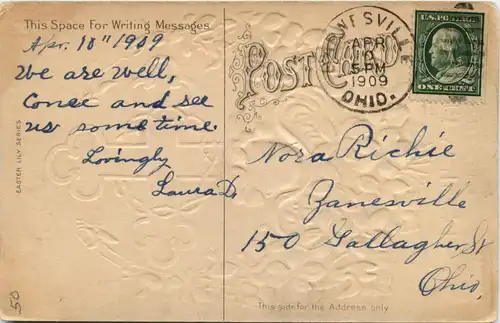 This Space For Writing Messages
Apr. 10" 1909
We are well,
Come and see
us some time.
Lovingly
Laura D.
EASTER LILY SERIES
50
POST CARD
NESVILLE
APR
5 PM
1909
OHIO.
U.S. POSTAGE
ONE CENT
Nora Richie
Zanesville
150 Gallagher St
Ohio,
This side for the Address only